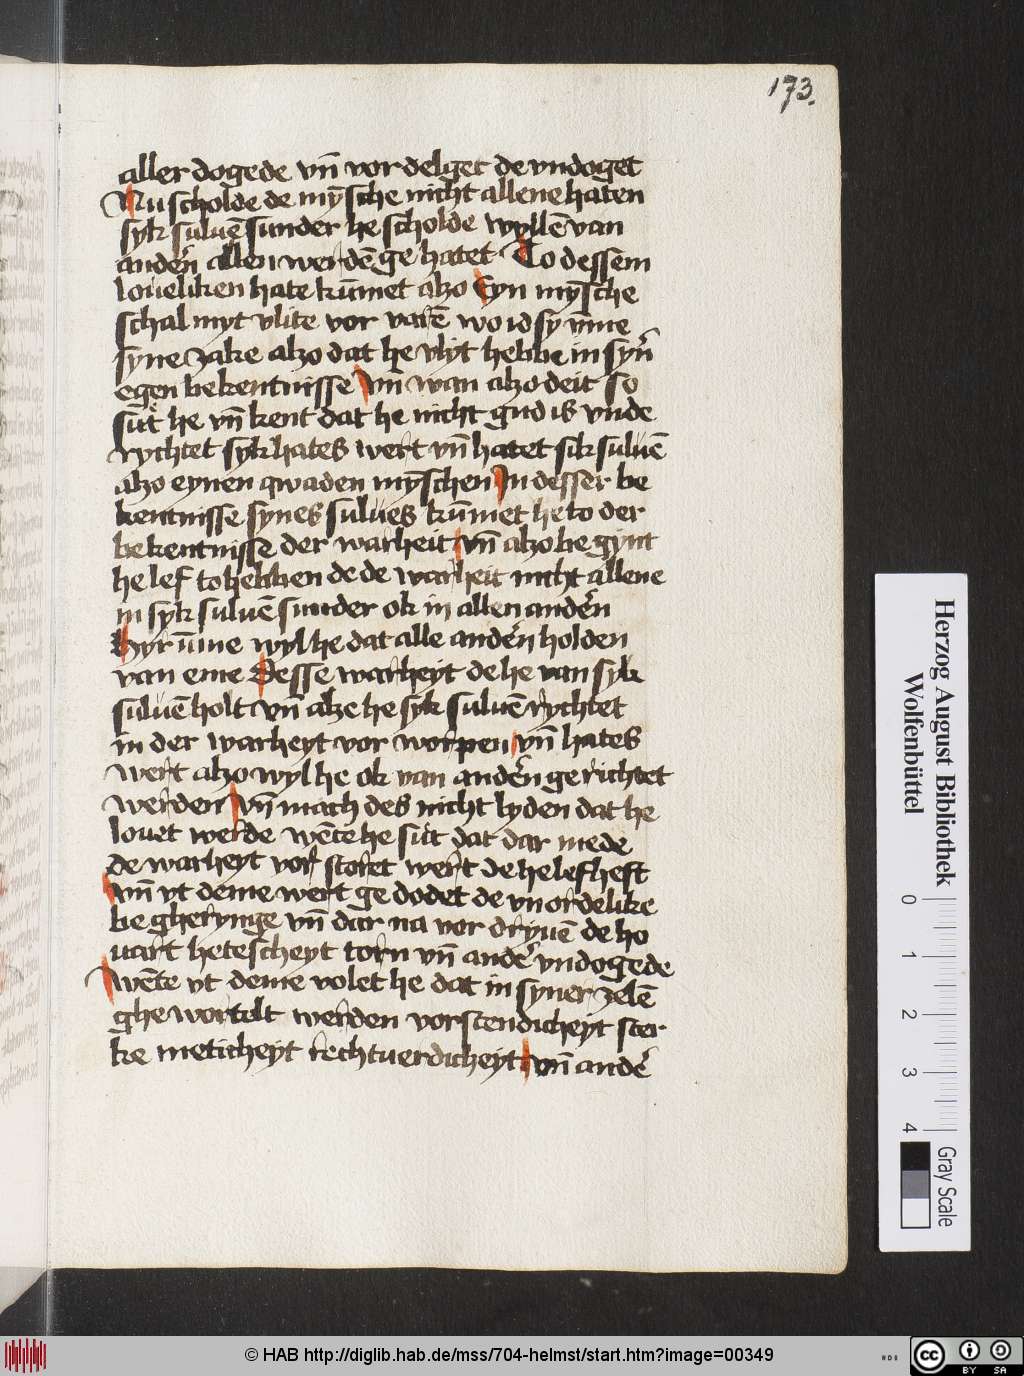 173.
aller dogede vn̄ vor delget de vndoget
Nu scholde de mȳsche nicht allene haten
syk suluē sunder he scholde wyllē van
andern̄ allen werdē ge hatet To dessem
loueliken hate kūmet alzo Eyn mȳsche
schal myt vlite vor varē wo id sy vm̄e
syne zake alzo dat he vlyt hebbe in syn̄
egen bekentnisse vn̄ wan alzo deit so
sut he vn̄ kent dat he nicht gud is vnde
rychtet syk hates wert vn̄ hatet sik suluē
alzo eynen qwaden mȳschen In desser be
kentnisse synes sulues kūmet he to der
bekentnisse der warheit vn̄ alzo be gynt
he lef to hebben de de warheit nicht allene
in syk suluē sunder ok in allen andern̄
Hyr vm̄e wyl he dat alle andern̄ holden
van eme Desse warheyt de he van syk
suluē holt vn̄ alze he syk suluē rychtet
in der warheyt vor worpen vn̄ hates
wert alzo wyl he ok van andern̄ ge richtet
werden vn̄ mach des nicht lyden dat he
louet werde wēte he sut dat dar mede
de warheyt vor storet wert de he lef heft
vn̄ vt deme wert ge dodet de vnordelike
be gherynge vn̄ dar na vor dryuē de ho
uart hetescheyt torn vn̄ ander̄ vndogede
wēte vt deme volet he dat in syner zelē
ghe wortelt werden vorstendicheyt ster
ke meticheyt rechtuerdicheyt vn̄ ander̄
Herzog August Bibliothek
Wolfenbüttel
0 1 2 3 4
Gray Scale
© HAB http://diglib.hab.de/mss/704-helmst/start.htm?image=00349
cc BY SA